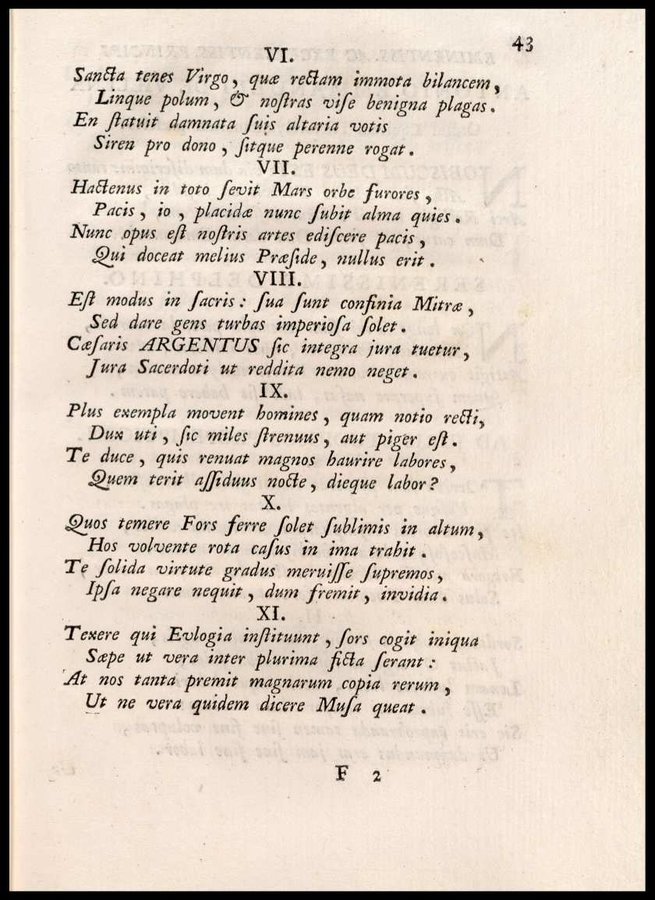 43
VI.
Sancta tenes Virgo, quæ rectam immota bilancem,
Linque polum, & noſtras viſe benigna plagas.
En ſtatuit damnata ſuis altaria votis
Siren pro dono, ſitque perenne rogat.
VII.
Hactenus in toto ſevit Mars orbe furores,
Pacis, io, placidæ nunc ſubit alma quies.
Nunc opus eſt noſtris artes ediſcere pacis,
Qui doceat melius Præſide, nullus erit.
VIII.
Eſt modus in ſacris: ſua ſunt confinia Mitræ,
Sed dare gens turbas imperioſa ſolet.
Cæſaris ARGENTUS ſic integra jura tuetur,
Jura Sacerdoti ut reddita nemo neget.
IX.
Plus exempla movent homines, quam notio recti,
Dux uti, ſic miles ſtrenuus, aut piger eſt.
Te duce, quis renuat magnos haurire labores,
Quem terit aſſiduus nocte, dieque labor?
X.
Quos temere Fors ferre ſolet ſublimis in altum,
Hos volvente rota caſus in ima trahit.
Te ſolida virtute gradus meruiſſe ſupremos,
Ipſa negare nequit, dum fremit, invidia.
XI.
Texere qui Evlogia inſtituunt, ſors cogit iniqua
Sæpe ut vera inter plurima ficta ſerant:
At nos tanta premit magnarum copia rerum,
Ut ne vera quidem dicere Muſa queat.
F 2